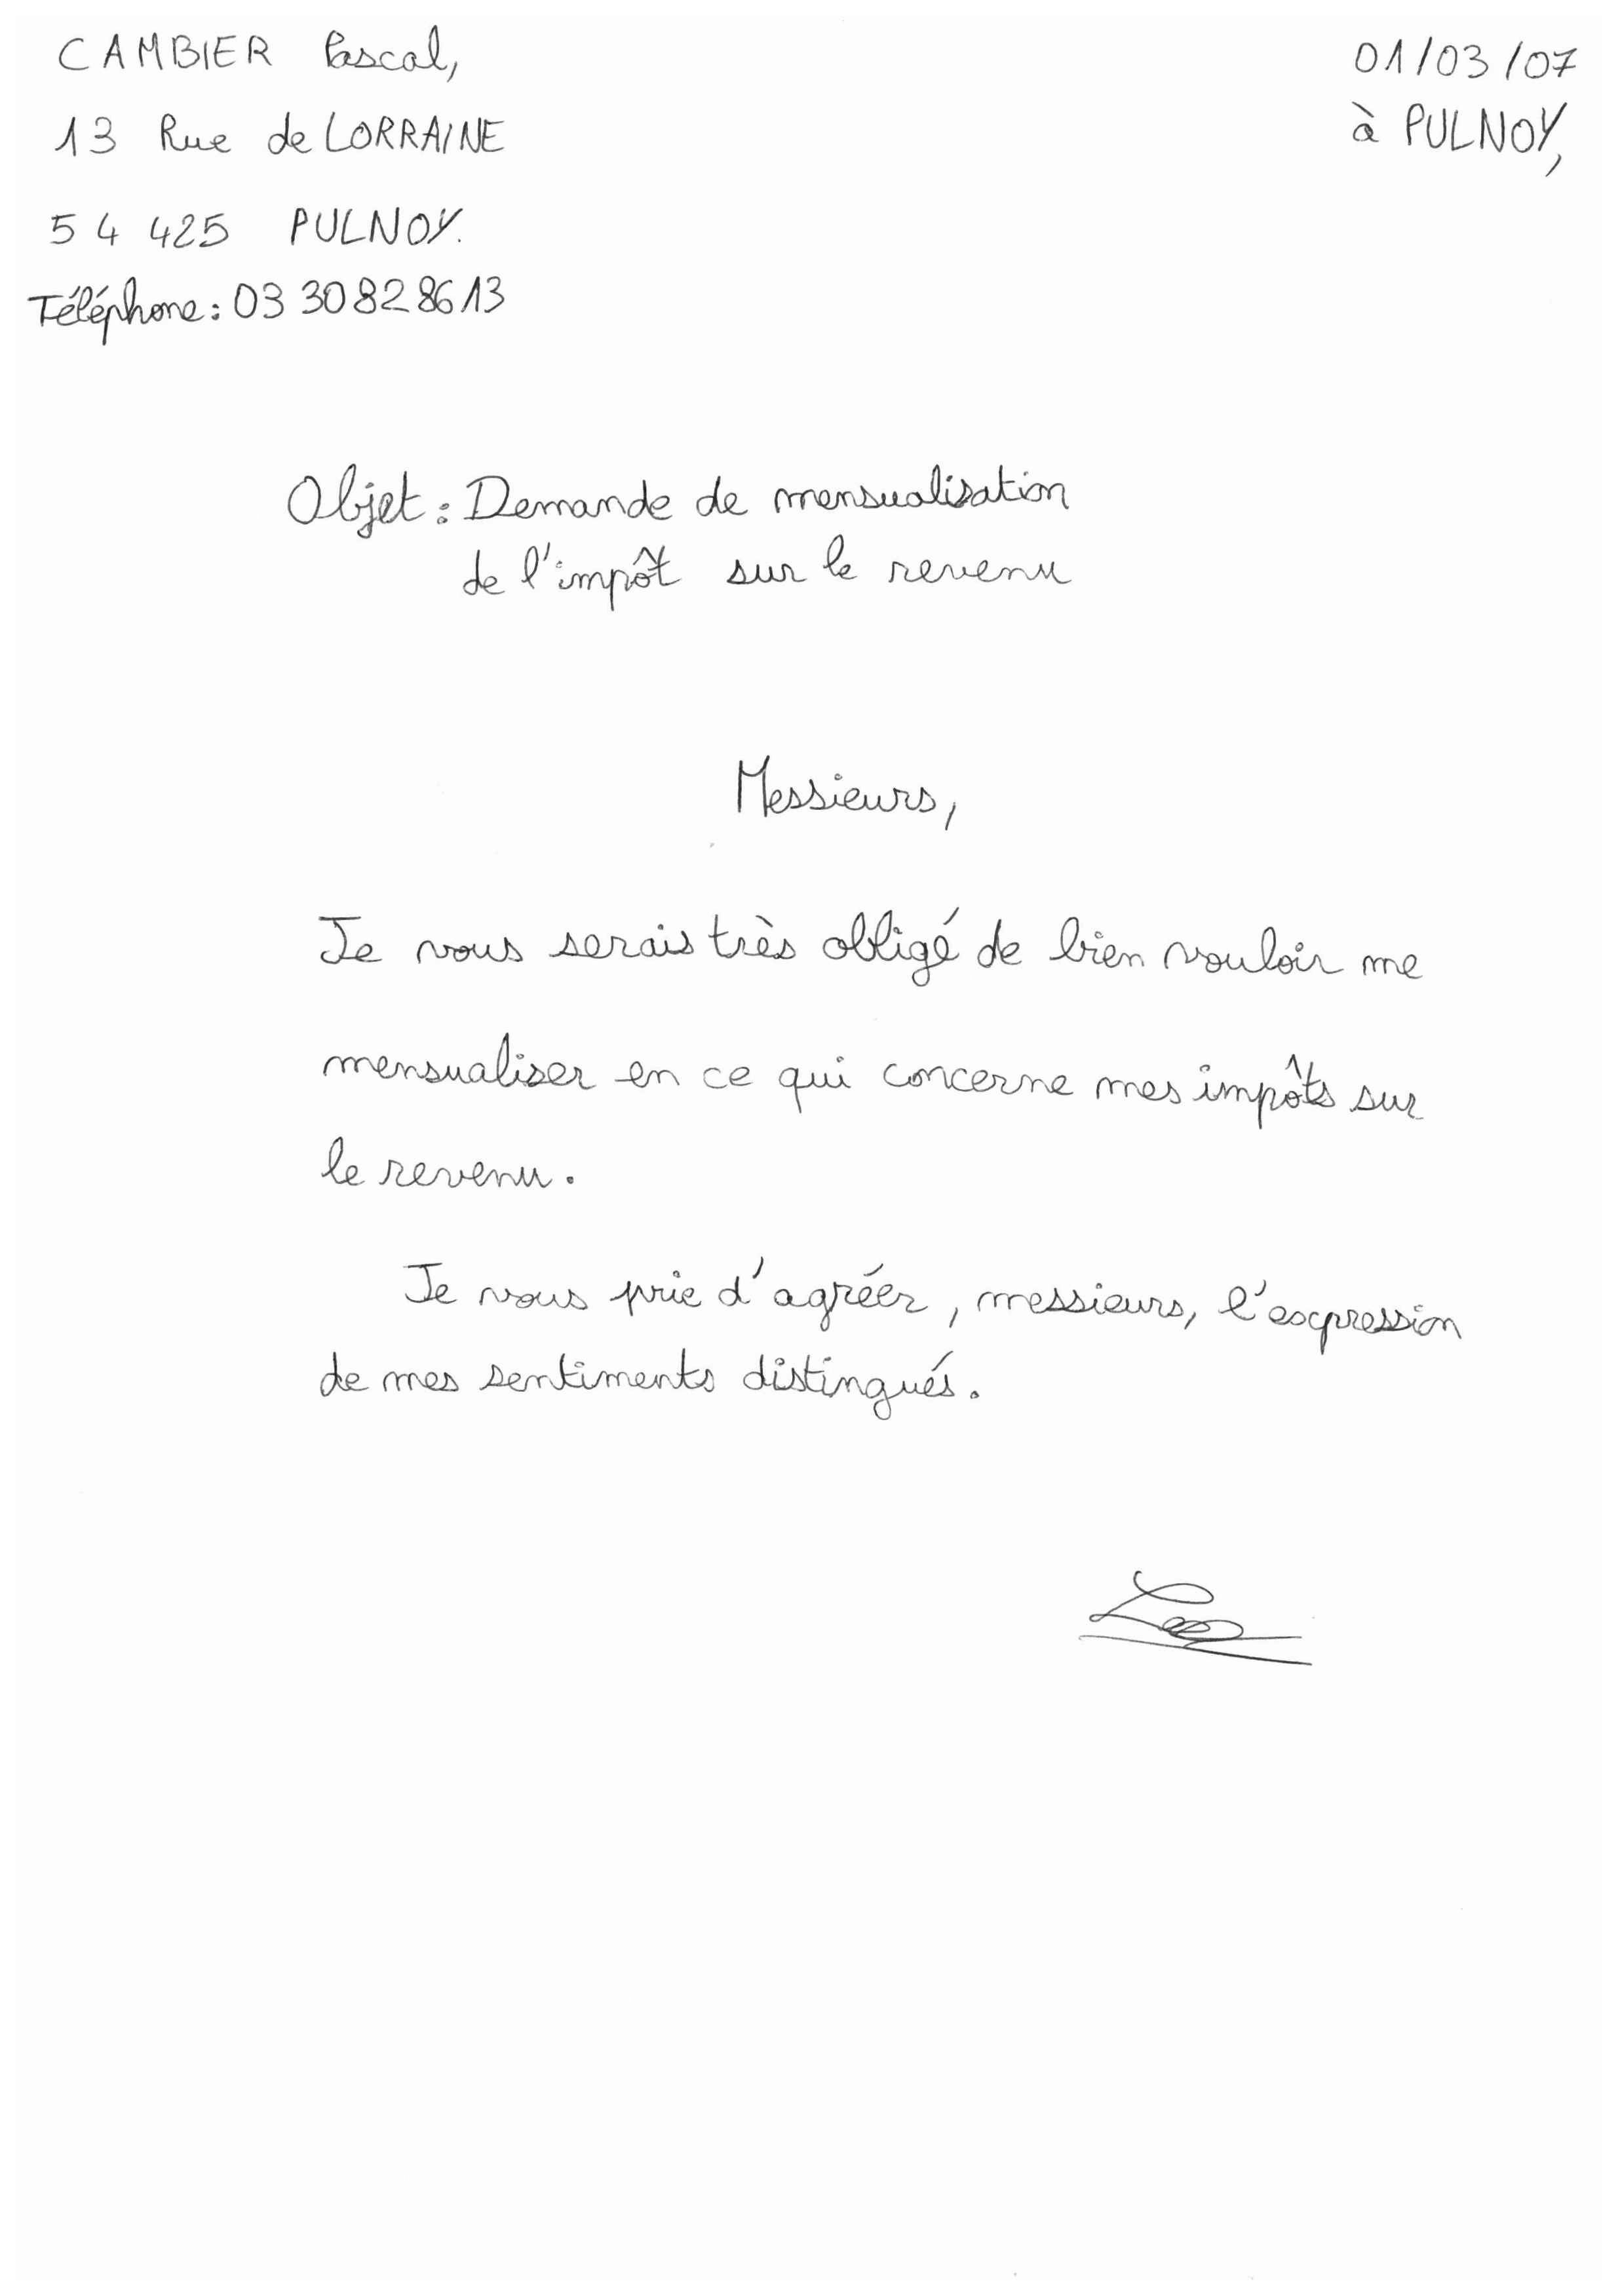 CAMBIER Pascal,
13 Rue de LORRAINE
54 425 PULNOY.
Téléphone : 03 30 82 86 13
01/03/07
à PULNOY,
Objet : Demande de mensualisation
de l'impôt sur le revenu
Messieurs,
Je vous serais très obligé de bien vouloir me
mensualiser en ce qui concerne mes impôts sur
le revenu.
Je vous prie d'agréer, messieurs, l'expression
de mes sentiments distingués.